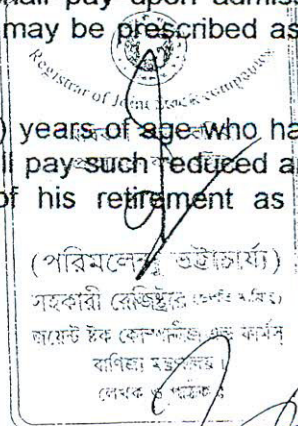 shall pay upon admiss
may be prescribed as
Registrar of Joint Stock Companies
) years of age who ha
ll pay such reduced a
of his retirement as
(পরিমলেন্দু ভট্টাচার্য্য)
সহকারী রেজিষ্ট্রার
জয়েন্ট ষ্টক কোম্পানীজ এন্ড ফার্মস
বাণিজ্য মন্ত্রণালয়
লেখক ও পাঠক